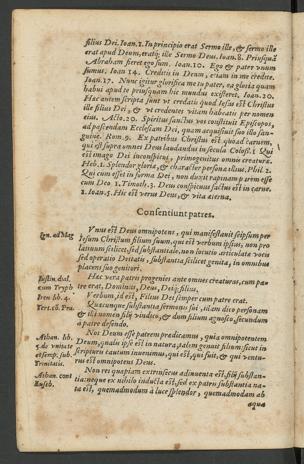 filius Dei. Ioan. 1. In principio erat Sermo ille, & sermo ille
erat apud Deum, eratq́; ille Sermo Deus. Ioan. 8. Priusquã
Abraham fieret ego sum. Ioan. 10. Ego & pater vnum
sumus. Ioan. 14. Creditis in Deum, etiam in me credite.
Ioan. 17. Nunc igitur glorifica me tu pater, ea gloria quam
habui apud te priusquam hic mundus existeret. Ioan. 20.
Hæc autem scripta sunt vt credatis quod Iesus est Christus
ille filius Dei, & vt credentes vitam habeatis per nomen
eius. Acto. 20. Spiritus sanctus vos constituit Episcopos,
ad pascendam Ecclesiam Dei, quam acquisiuit suo illo san-
guine. Rom. 9. Ex patribus Christus est quoad carnem,
qui est supra omnes Deus laudandus in secula Coloss. 1. Qui
est imago Dei inconspicui, primogenitus omnis creaturæ.
Heb. 1. Splendor gloriæ, & character personæ illius. Phil. 2.
Qui cum esset in forma Dei, non duxit rapinam parem esse
cum Deo 1. Timoth. 3. Deus conspicuus factus est in carne.
1. Ioan. 5. Hic est verus Deus, & vita æterna.
Consentiunt patres.
Ign. ad Mag
Vnus est Deus omnipotens, qui manifestauit seipsum per
Iesum Christum filium suum, qui est verbum ipsius, non pro
latiuum scilicet, sed substantiale, non locutio articulatæ vocis
sed operatio Deitatis, substantia scilicet genita, in omnibus
placens suo genitori.
Iustin. dial.
cum Tryph
Hæc vera patris progenies ante omnes creaturas, cum pa-
tre erat, Dominus, Deus, Deiq́; filius.
Iren lib. 4.
Verbum, id est, Filius Dei semper cum patre erat.
Tert. cõ. Pra.
Quæcunque substantia sermonis fui, illam dico personam
& illi nomen filij vindico, & dum filium agnosco, secundum
à patre defendo.
Athan. lib.
de vnitate
Nos Deum esse patrem prædicamus, quia omnipotentem
Deum, qualis ipse est in natura, talem genuit filium: sicut in
scripturis cautum inuenimus, qui est, qui fuit, & qui ventu-
rus est omnipotens Deus.
Trinitatis.
Athan. cont
Euseb.
Non res quapiam extrinsecus adinuenta est, filij substan-
tia: neque ex nihilo inducta est, sed ex patris substantia na-
ta est, quemadmodum à luce splendor, quemadmodum ab
aqua